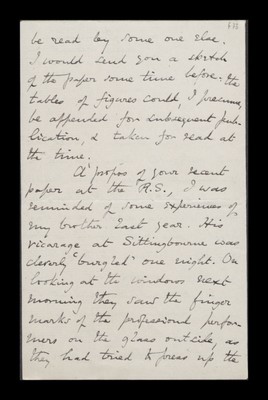 be read by some one else.
I would send you a sketch
of the paper some time before. The
tables of figures could, I presume,
be appended for subsequent pub-
lication, & taken for read at
the time.
A'propos of your recent
paper at the R.S., I was
reminded of some experiences of
my brother last year. His
vicarage at Sittingbourne was
cleverly "burgled" one night. On
looking at the windows next
morning they saw the finger
marks of the professional perfor-
mers on the glass outside, as
they had tried to press up the